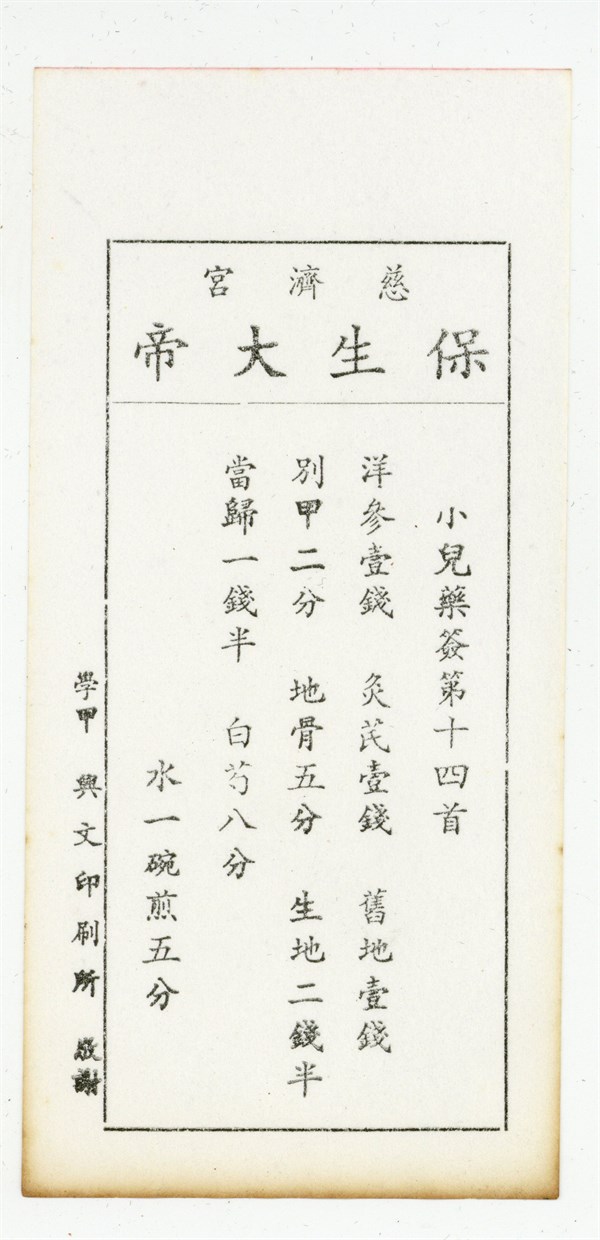 慈濟宮
保生大帝
小兒藥簽第十四首
洋參壹錢 灸芪壹錢 舊地壹錢
別甲二分 地骨五分 生地二錢半
當歸一錢半 白芍八分
水一碗煎五分
學甲 興文印刷所 敬謝